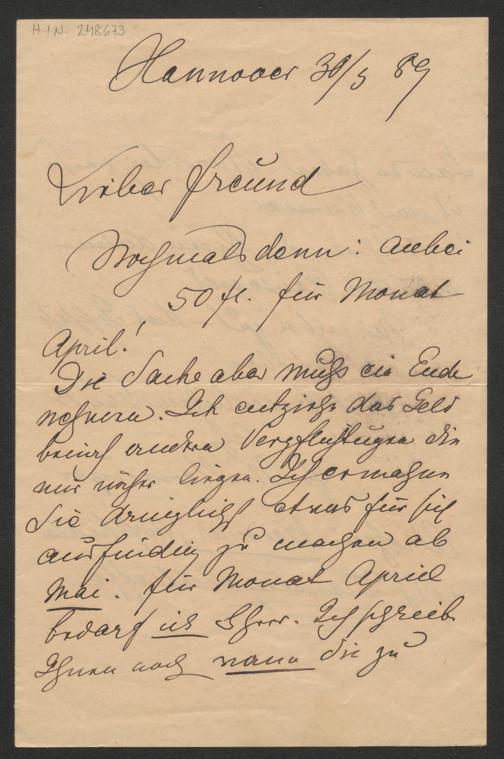 H.I.N. 248673
Hannover 30/3 89
Lieber Freund
Nochmals denn: anbei
50 fl. für Monat
April!
Die Sache aber muß ein Ende
nehmen. Ich entziehe das Geld
andern Verpflichtungen die
mir näher liegen. Ich ermahne
Sie dringlichst etwas für sich
ausfindig zu machen ab
Mai. Für Monat April
bedarf ich Ihrer. Ich schreibe
Ihnen noch wann Sie zu